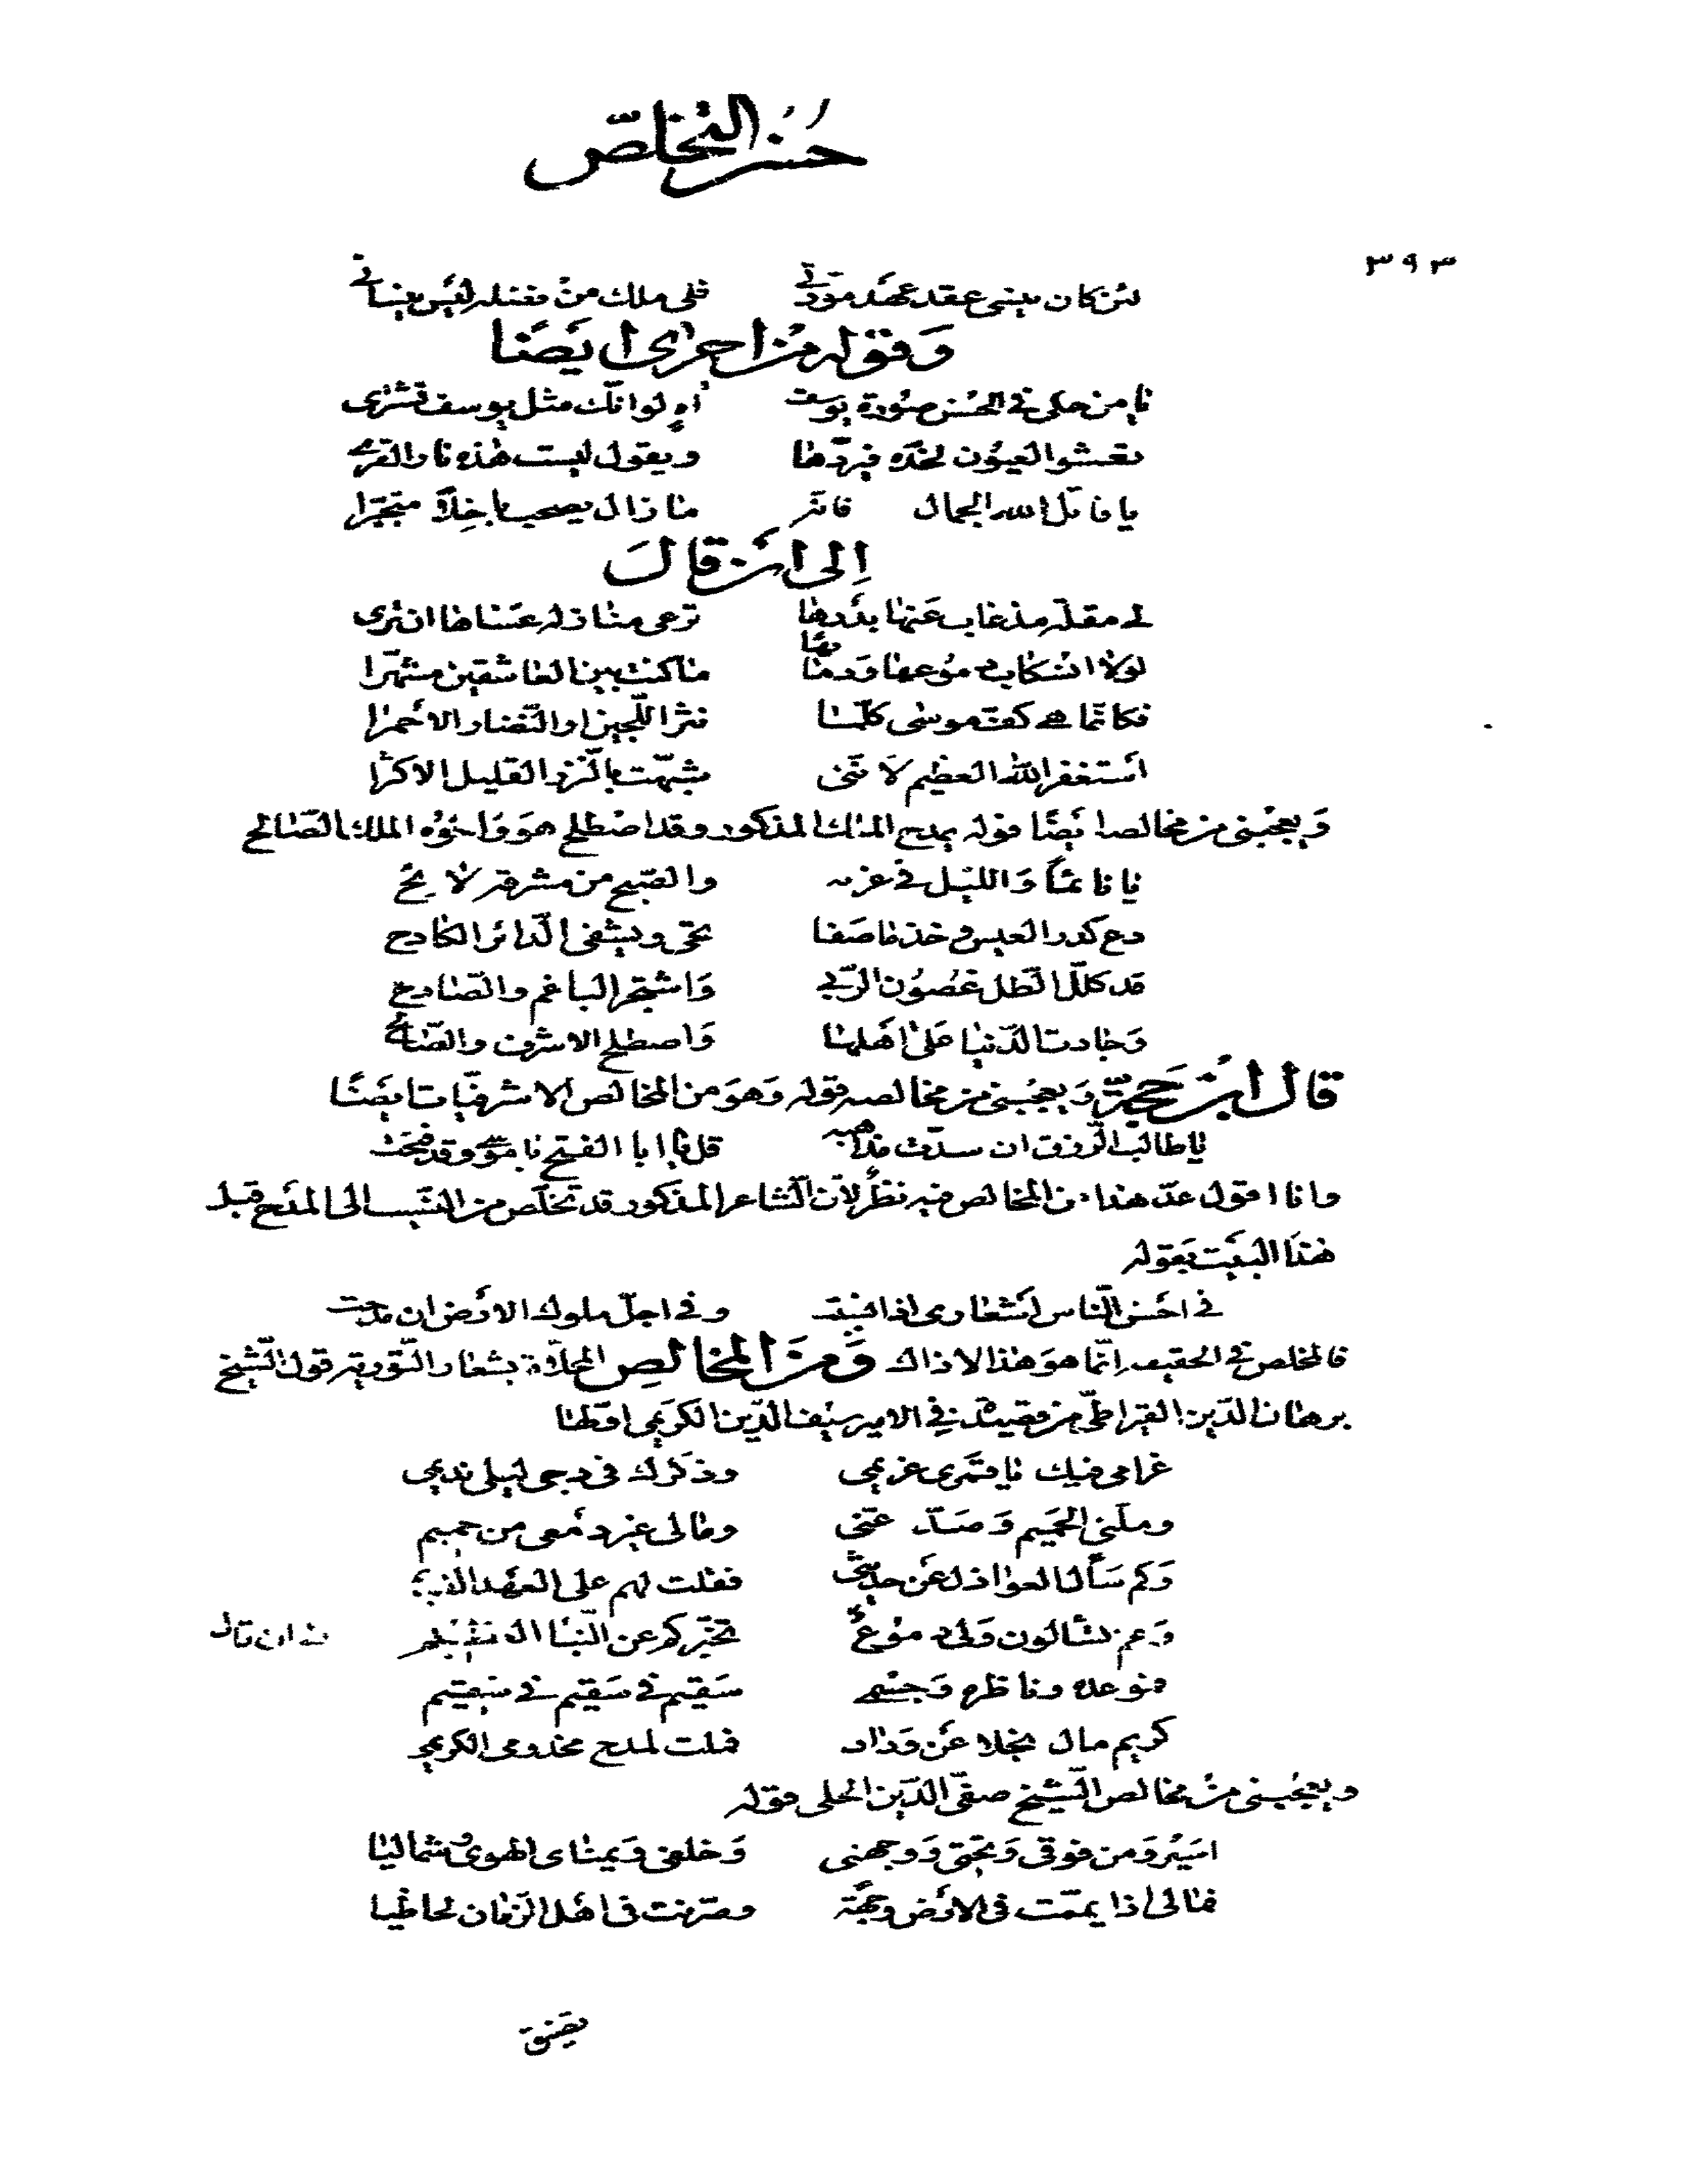 حُسْنُ التخلّص
٣٩٣
لئن كان ينسى عقد عهد مودتي فلى ملك من فضله ليس ينساني
وَقوله من اخرى ايضًا
يا من حكى في الحُسْن صُورة يوسف اهٍ لو انّك مثل يوسف تشترى
تعشوا العيُون لخدّه فيردّها ويقول ليست هذه نار القرى
يا قاتل الله الجمال فانّه ما زال يصحب باخلًا متجبّرا
اِلى ان قالَ
لى مقلة مذ غاب عَنها بدرها ترعى منازله عسَاها ان ترى
لولا انسكاب دموعها ودمائها ما كنت بين العاشقين مشهّرا
فكانّما هى كفّ موسى كلّما نثر اللّجين او النّضار الاحمرا
استغفر الله العظيم لانّنى شبّهت بالنّزر القليل الاكثرا
وَيعجُبنى من مخالصه ايضًا قوله يمدح الملك المذكور وقد اصطلح هوَ وَاخوُه الملك الصّالح
يا نائمًا وَالليْل فى غربه والصّبح من مشرقه لائح
دع كدر العيش وخذ ما صَفا
قد كلّل الطّل غصُون الرّبى وَاشتجر الباغم والصّادح
وَجادت الدّنيا عَلى اهلها وَاصطلح الاشرف والصّالح
قال ابن حجّة وَيعجُبنى من مخالصه قوله وَهوَ من المخالص الاشرفيّات ايضًا
يا طالب الرّزق ان سدّت مذاهبه قل يا ابا الفتح يا موسى وقد فتحت
وانا اقول عدّ هذا من المخالص فيه نظرٌ لانّ الشاعر المذكور قد تخلّص من النّسيب الى المدح قبل
هذا البيت بقوله
فى احسن النّاس اشعارى اذا نسبت وفى اجلّ ملوك الارض ان مدحت
فالمخلص فى الحقيقه اِنّما هوَ هذا لا ذاك وَمنَ المخالصِ المحلّاة بشعار التّورية قول الشّيخ
برهان الدّين القيراطىّ من قصيدة فى الامير سيْف الدّين الكريمى اوّلها
غرامى فيك يا قمرى غريمى وذكرك فى دجى ليلى نديمى
وملّنى الحميم وَصدّ عنّى ومالى غير دمعى من حميم
وَكم سَأل العواذل عَن حديثى فقلت لهم على العهد القديم
وَعم تسألون وَلى دموعٌ تخبّركم عن النّبأ العظيم منه ان قال
موعده وناظره وَجسمى سَقيم فى سَقيم فى سَقيم
كريم مال بخلا عَن وَداد فملت لمدح مخدومى الكريمى
ويعجُبنى من مخالص الشّيخ صفىّ الدّين الحلى قوله
اسيْر وَمن فوقى وَتحتى وَوجهتى وَخلفى وَيمناى الهوىٰ وشماليا
فما لى اذا يمّمت فى الارض وجهة وصرّفت فى اهل الزّمان لحاظيا